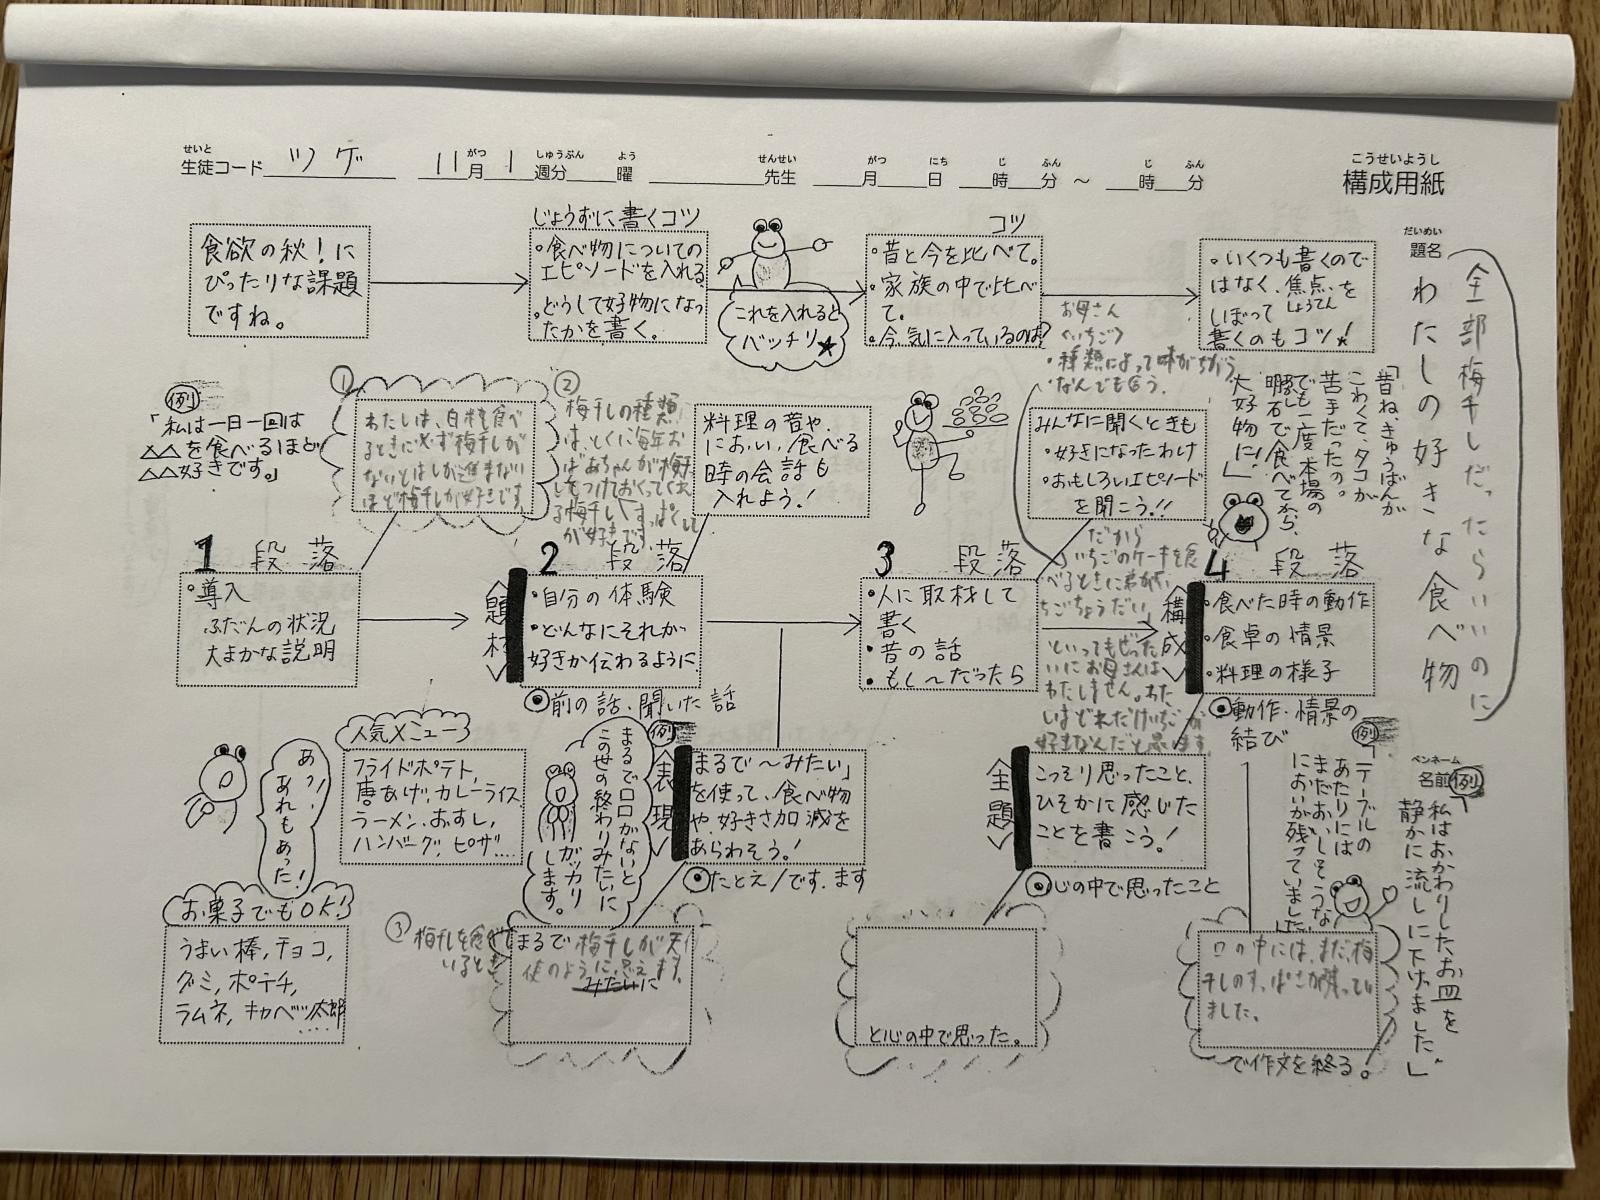 せいと
生徒コード ツゲ 11月 1週分 曜 先生 月 日 時 分 ～ 時 分
がつ しゅうぶん よう せんせい がつ にち じ ふん じ ふん
こうせいようし
構成用紙
だいめい
題名
わたしの好きな食べ物
全部梅干しだったらいいのに
ペンネーム
名前
食欲の秋！に
ぴったりな課題
ですね。
じょうずに書くコツ
・食べ物についての
エピソードを入れる
・どうして好物になっ
たかを書く。
これを入れると
バッチリ★
コツ
・昔と今を比べて。
・家族の中で比べ
て。
・今、気に入っているのは？
・いくつも書くので
はなく、焦点を
しょうてん
しぼって
書くのもコツ！
お母さん
くいちご
・種類によって味がちがう
・なんでも合う。
例
「私は一日一回は
△△を食べるほど
△△好きです。」
①
わたしは、白料を食べ
るときに必ず梅干しが
ないとはしが進まない
ほど梅干しが好きです。
②
梅干しの種類
は、とくに毎年お
ばあちゃんが梅干
しをつけておくってくれ
る梅干し
が好きです。
料理の昔や、
におい、食べる
時の会話も
入れよう！
みんなに聞くときも
・好きになったわけ
・おもしろいエピソード
を聞こう！！
「昔ね、きゅうばんが
こわくて、タコが
苦手だったの。
でも一度本場の
明石で食べてから、
大好物に！」
1 段落
・導入
ふだんの状況
大まかな説明
2 段落
＜題材＞
・自分の体験
・どんなにそれが
好きか伝わるように
◉前の話、聞いた話
3 段落
・人に取材して
書く
・昔の話
・もし〜だったら
だから
いちごのケーキを食
べるときに弟が
いちごちょうだい」
といってもぜった
いにお母さんは
わたしません。わた
しはどれだけいちごが
好きなんだと思います。
4 段落
＜構成＞
・食べた時の動作
・食卓の情景
・料理の様子
◉動作・情景の
結び
あっ！
あれもあった！
人気メニュー
フライドポテト、
唐あげ、カレーライス
ラーメン、おすし、
ハンバーグ、ピザ…
お菓子でもOK！
うまい棒、チョコ、
グミ、ポテチ、
ラムネ、キャベツ太郎
例
まるで口口がないと
この世の終わりみたいに
ガッカリ
します。
＜表現＞
まるで〜みたい」
を使って、食べ物
や、好きさ加減を
あらわそう！
◉たとえ/です、ます
③
梅干しを食べて
いるとき
まるで梅干しが天
使のように思えます。
みたいに
＜全題＞
こっそり思ったこと、
ひそかに感じた
ことを書こう！
◉心の中で思ったこと
と心の中で思った。
例
「テーブルの
あたりには
まだおいしそうな
においが残っていました」
例
「私はおかわりしたお皿を
静かに流しに下げました。」
口の中には、まだ梅
干しのすっぱさが残ってい
ました。
で作文を終る。